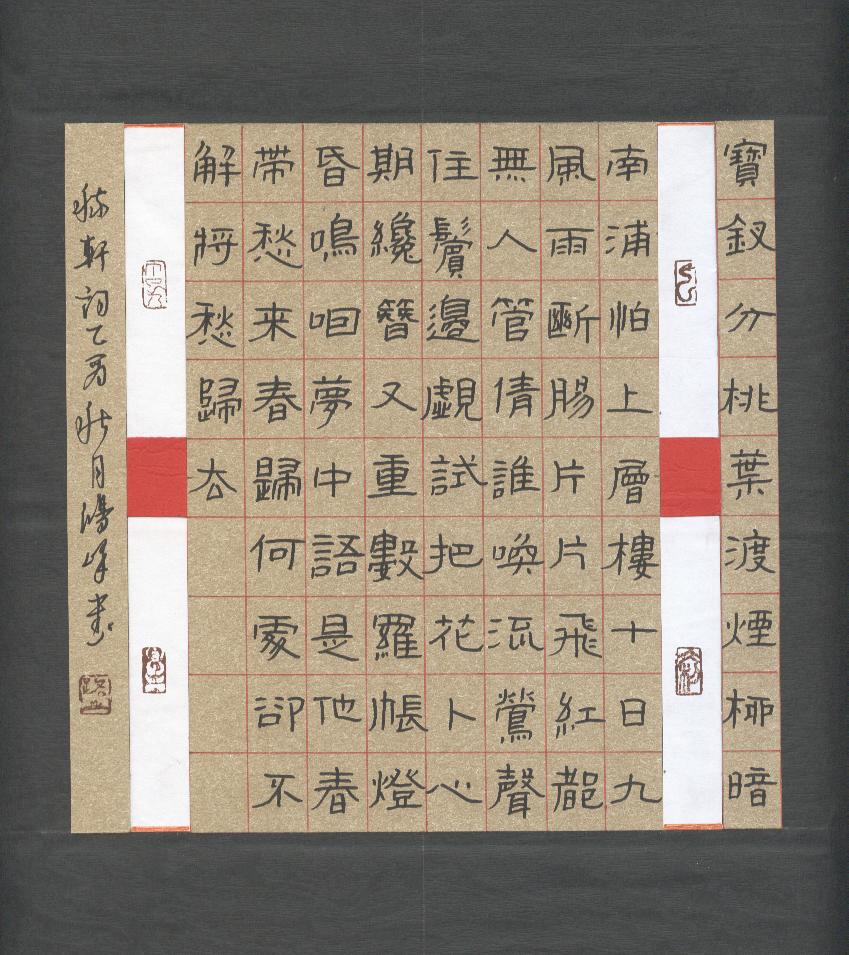 寶釵分桃葉渡煙柳暗
南浦怕上層樓十日九
風雨斷腸片片飛紅都
無人管倩誰喚流鶯聲
住鬢邊覷試把花卜心
期纔簪又重數羅帳燈
昏嗚咽夢中語是他春
帶愁来春歸何處卻不
解將愁歸去
稼軒詞乙酉秋月鴻峰書